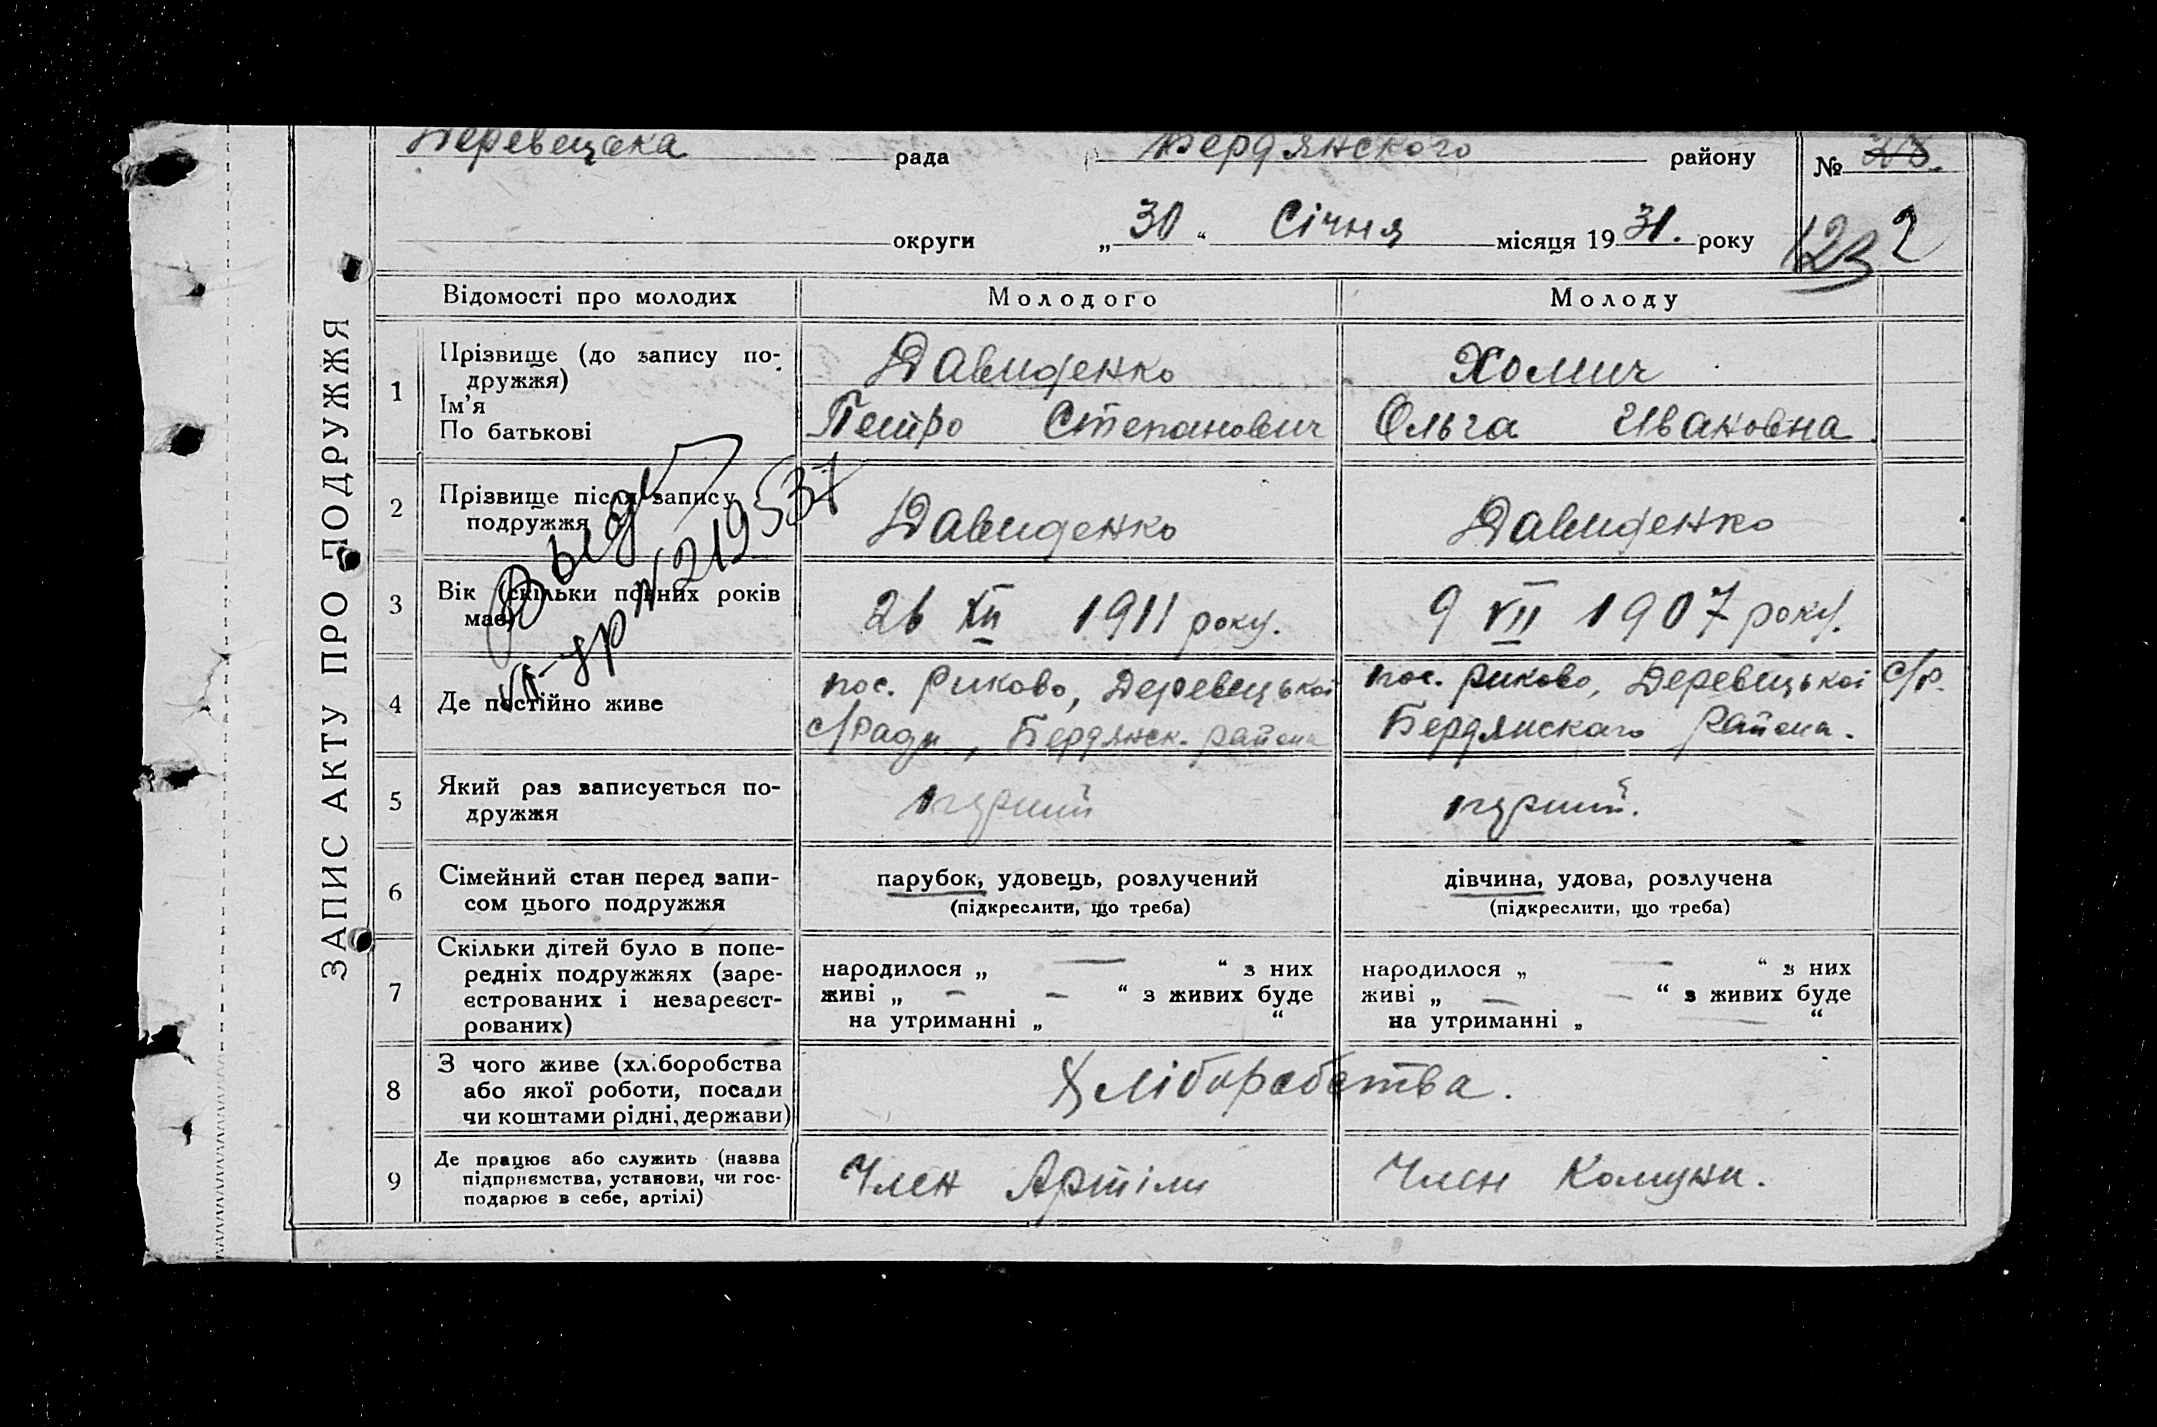 Деревецька рада Бердянского району № 28.
округи „30“ Січня місяця 1931. року 2
ЗАПИС АКТУ ПРО ПОДРУЖЖЯ
Відомості про молодих Молодого Молоду
1 Прізвище (до запису по-
дружжя)
Ім'я
По батькові
Давиденко
Петро Степанович
Хомич
Ольга Ивановна
2 Прізвище після запису
подружжя
Давиденко
Давиденко
Выд
№ 219537
3 Вік (скільки повних років
має)
26 XII 1911 року.
9 VII 1907 року.
4 Де постійно живе
пос. Риково, Деревецької
с/Ради, Бердянск. района
пос. Риково, Деревецької с/р.
Бердянскаго района.
5 Який раз записується по-
дружжя
перший
перший.
6 Сімейний стан перед запи-
сом цього подружжя
парубок, удовець, розлучений
(підкреслити, що треба)
дівчина, удова, розлучена
(підкреслити, що треба)
7 Скільки дітей було в попе-
редніх подружжях (заре-
єстрованих і незареєст-
рованих)
народилося „ — “ з них
живі „ — — “ з живих буде
на утриманні „ “
народилося „ — “ з них
живі „ — — “ з живих буде
на утриманні „ — “
8 З чого живе (хліборобства
або якої роботи, посади
чи коштами рідні, держави)
Хліборобства.
9 Де працює або служить (назва
підприємства, установи, чи гос-
подарює в себе, артілі)
Член Артіли
Член Комуни.